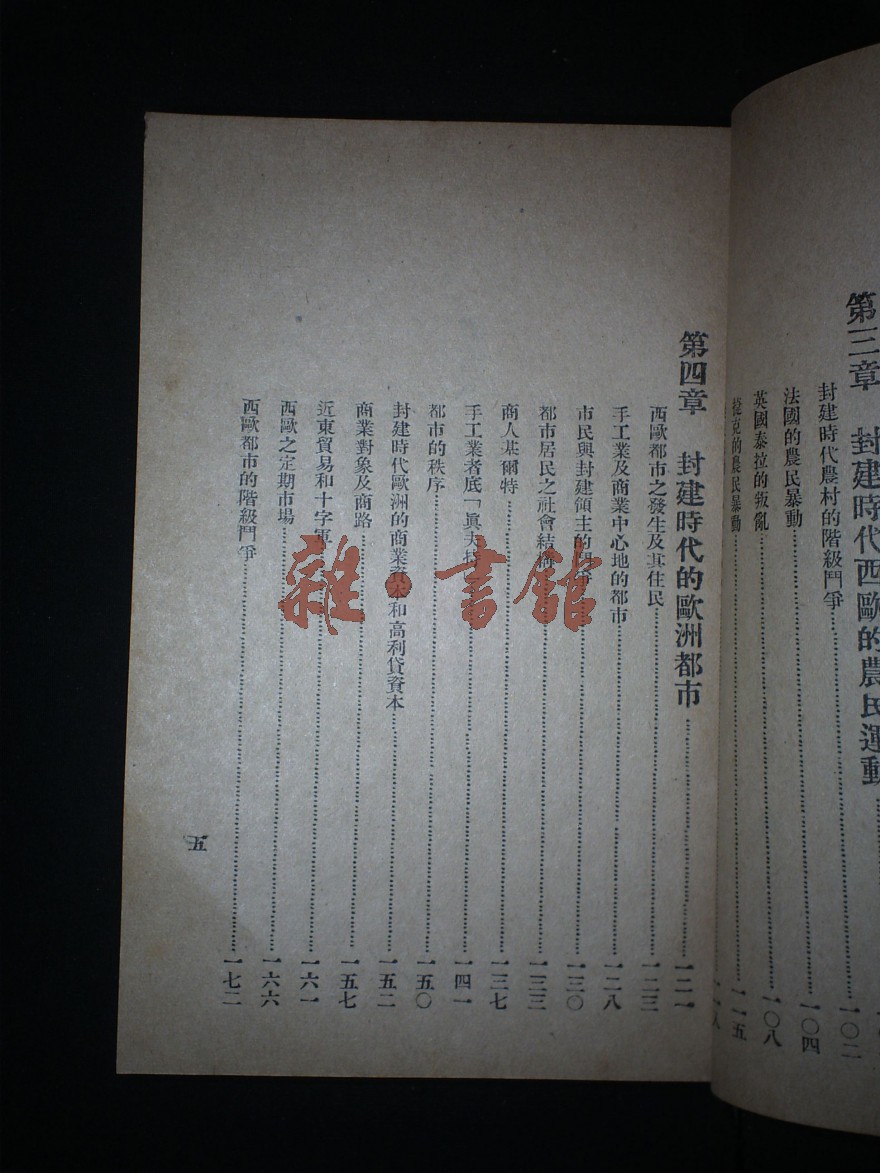 第三章　封建時代西歐的農民運動
封建時代農村的階級鬥爭……一〇二
法國的農民暴動……一〇四
英國泰拉的叛亂……一〇八
捷克的農民暴動……一一五
第四章　封建時代的歐洲都市……一二一
西歐都市之發生及其住民……一二三
手工業及商業中心地的都市……一二八
市民與封建領主的鬥爭……一三〇
都市居民之社會結構……一三三
商人基爾特……一三七
手工業者底「眞夫特……一四一
都市的秩序……一五〇
封建時代歐洲的商業資本和高利貸資本……一五二
商業對象及商路……一五七
近東貿易和十字軍……一六一
西歐之定期市場……一六六
西歐都市的階級鬥爭……一七二
五
雜·書館